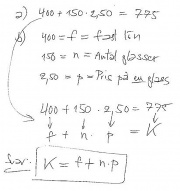 a) 400 + 150 · 2,50 = 775
b) 400 = f = fast lön
150 = n = Antal glasser
2,50 = p = Pris på en glass
400 + 150 · 2,50 = 775
f + n · p = K
Svar: K = f + n · p